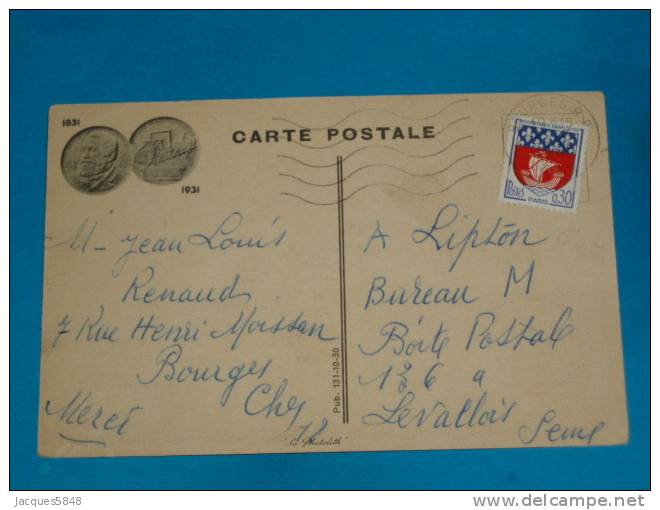 1831
1931
CARTE POSTALE
BOURGES R.P.
POSTES
PARIS
0,30
M- Jean Louis
Renaud
7 Rue Henri Moissan
Bourges
Cher
Merci
A Lipton
Bureau M
Boite Postale
136 a
Levallois
Seine
Pub. 131-10-30
Jacques5848
delcampe.net